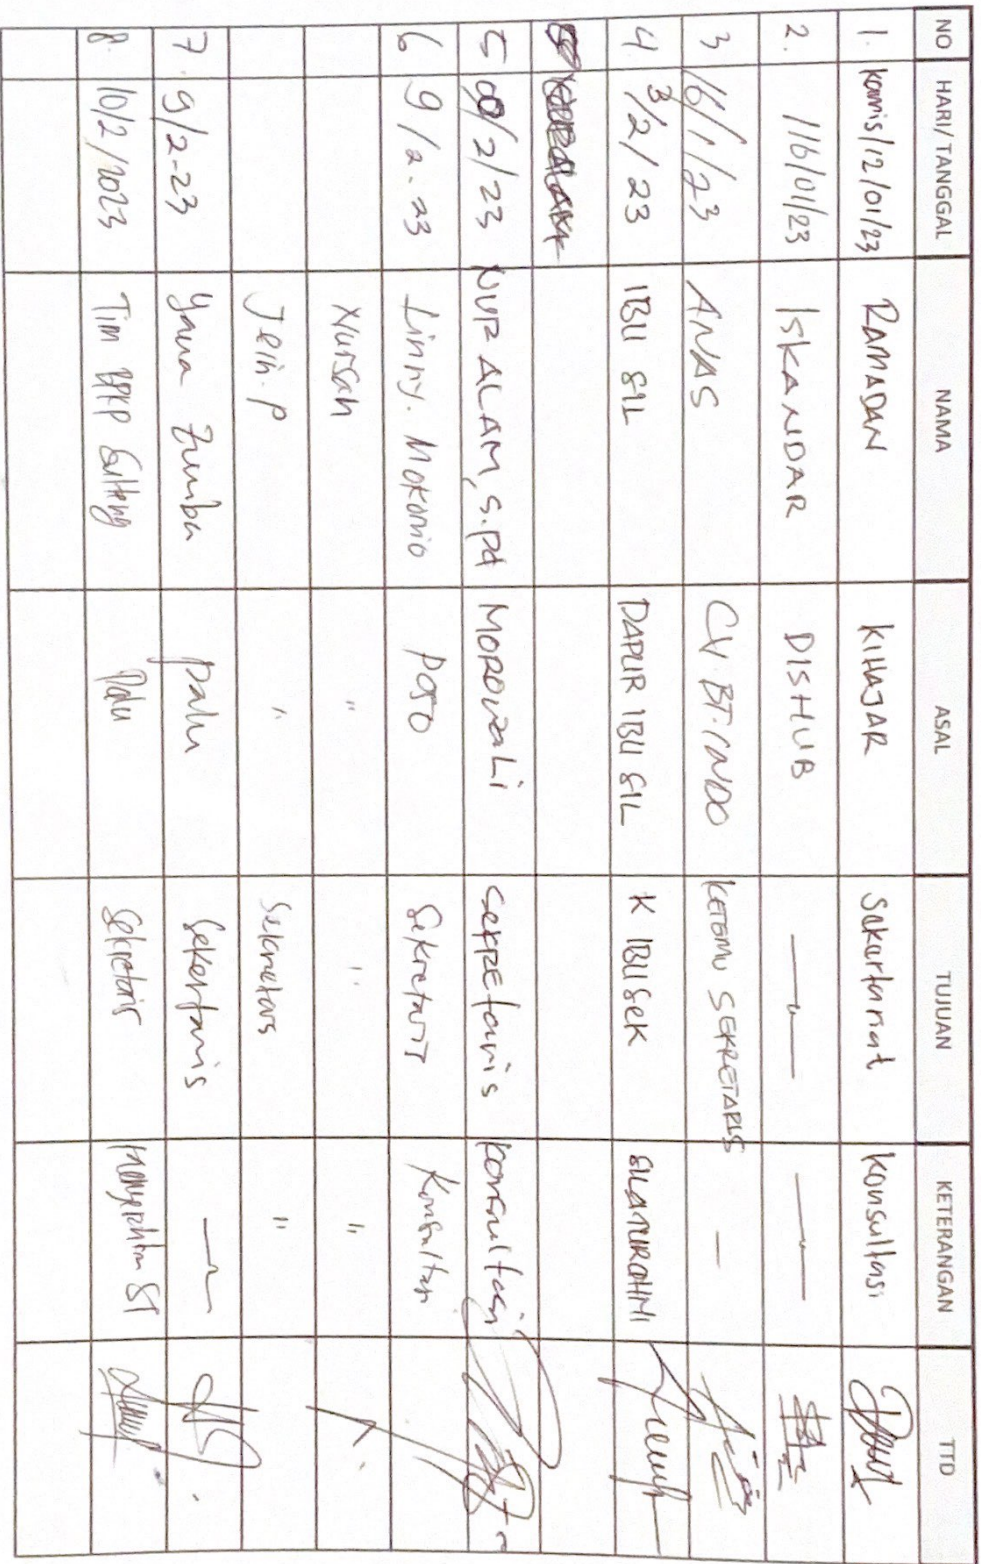 NO HARI/TANGGAL NAMA ASAL TUJUAN KETERANGAN TTD
1. Kamis/12/01/23 RAMADAN KIHAJAR Sekertariat Konsultasi
2. /16/01/23 ISKANDAR DISHUB
3 16/1/23 ANAS CV. BT. INDO KETEMU SEKRETARIS -
4. 3/2/23 IBU SIL DAPUR IBU SIL K IBU SEK SILATUROHMI
5 /2/23 NUR ALAM, S.Pd MOROWALI Sekretaris Konsultasi
6 9/2.23 Linny. Mokorio POSO Sekretaris Konsultasi
Nursah " " "
Jein.P " Sekretaris "
7. 9/2-23 Yana Zumba Palu Sekertaris
8. 10/2/2023 Tim BPKP Sulteng Palu Sekretaris ST